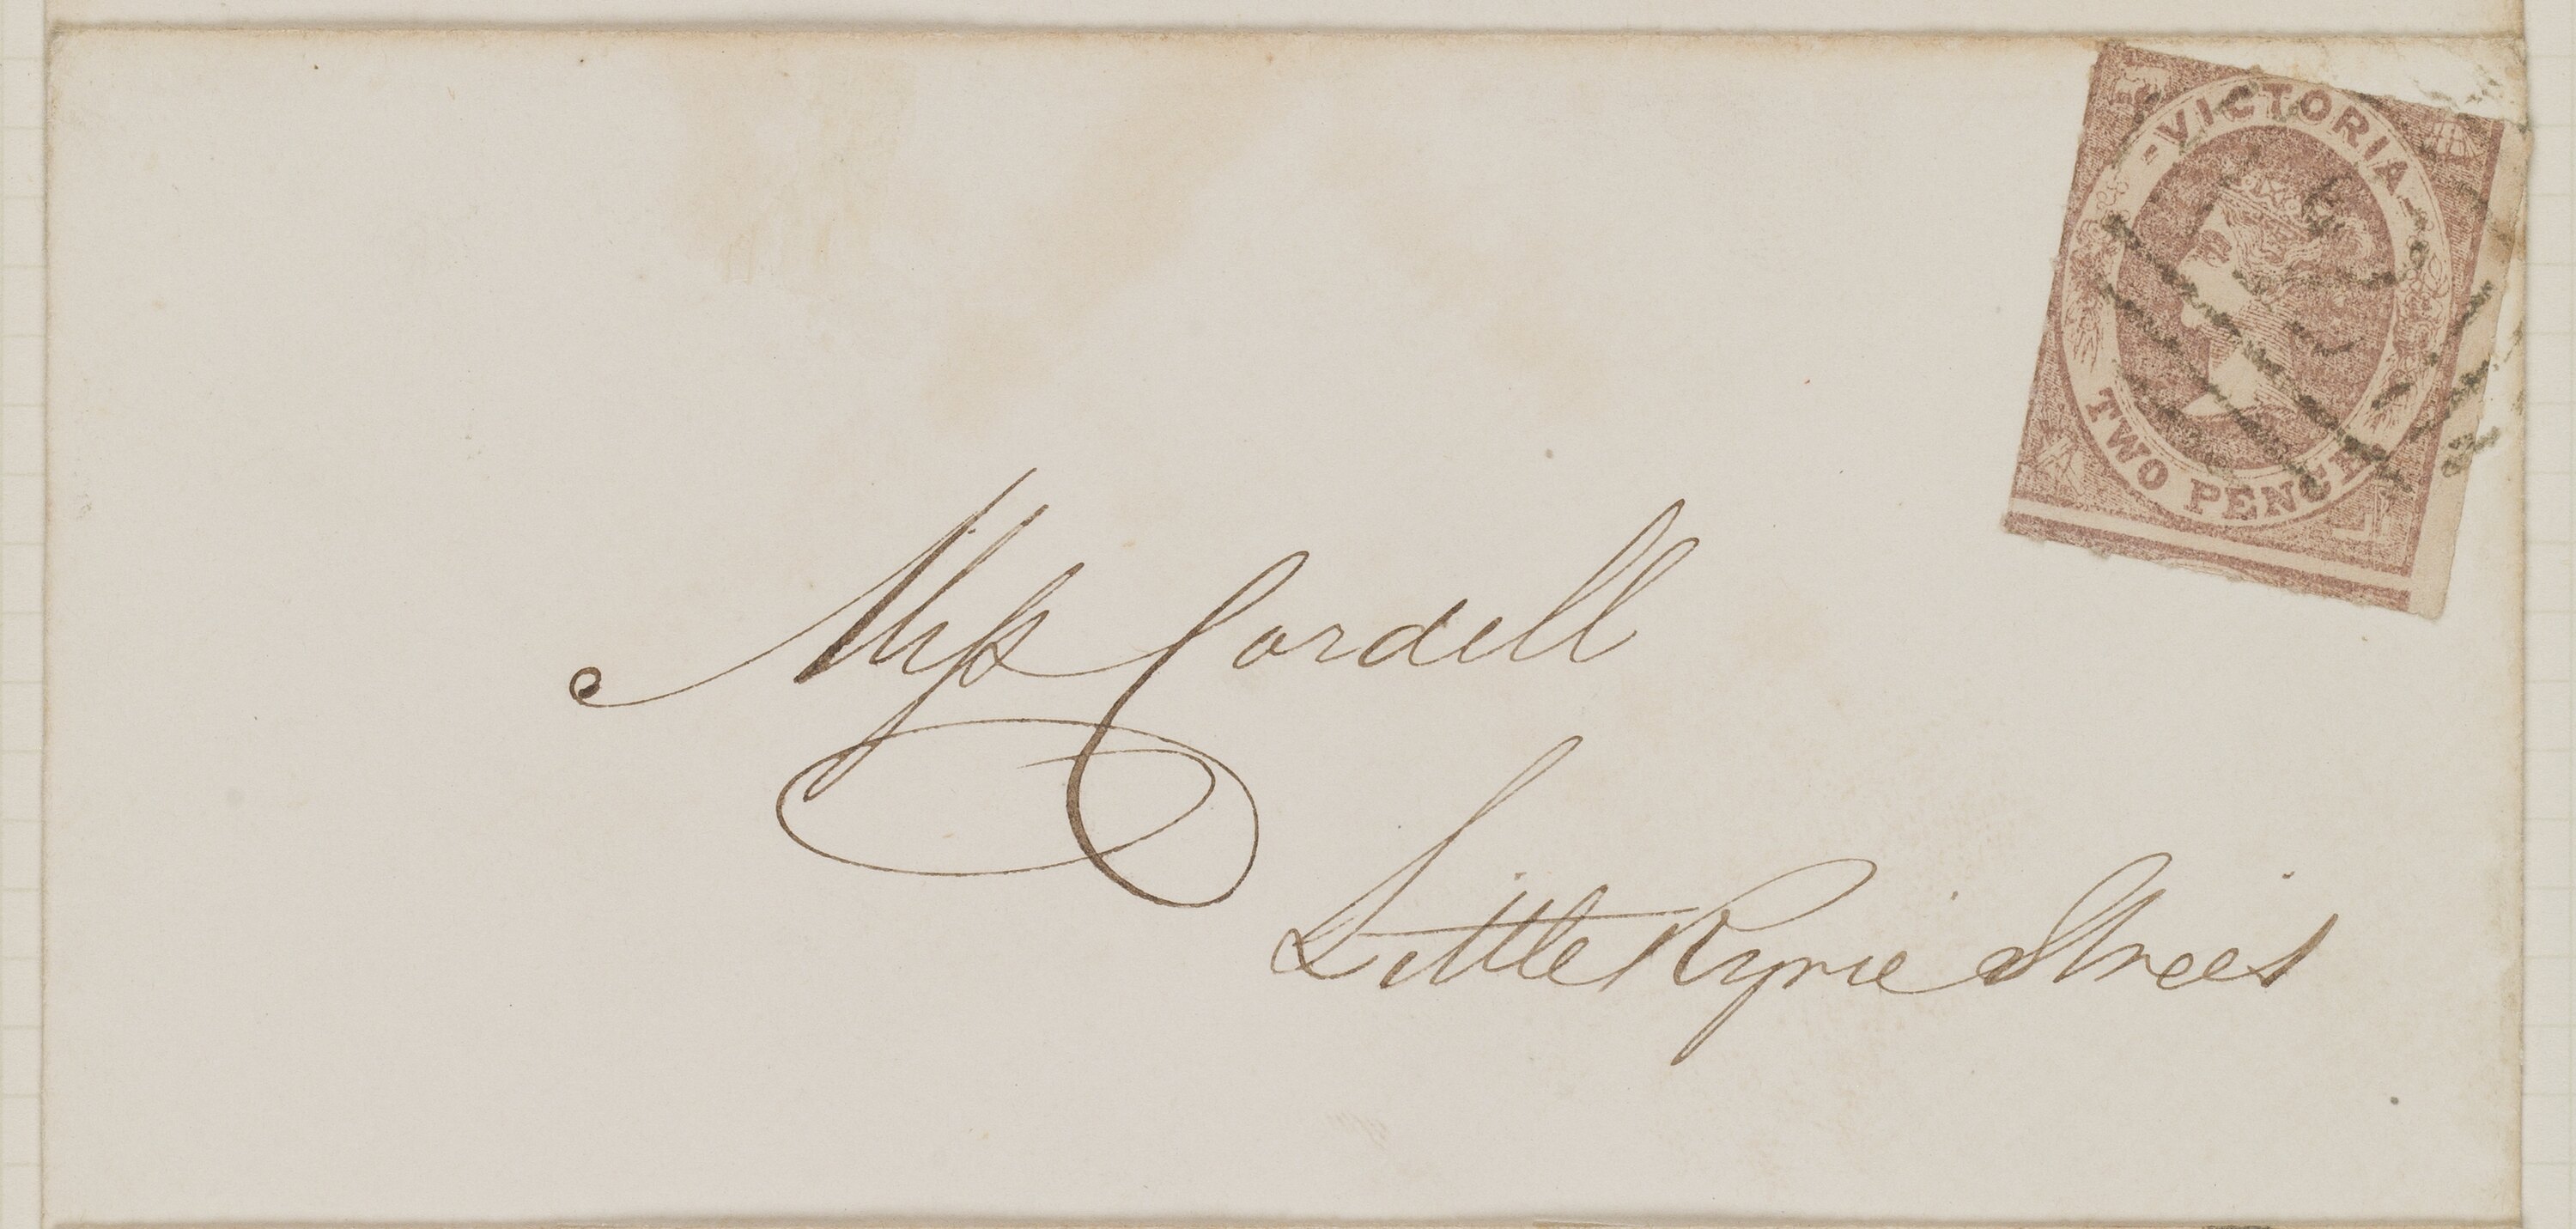 VICTORIA
TWO PENCE
Miss Cordell
Little Ryrie Street